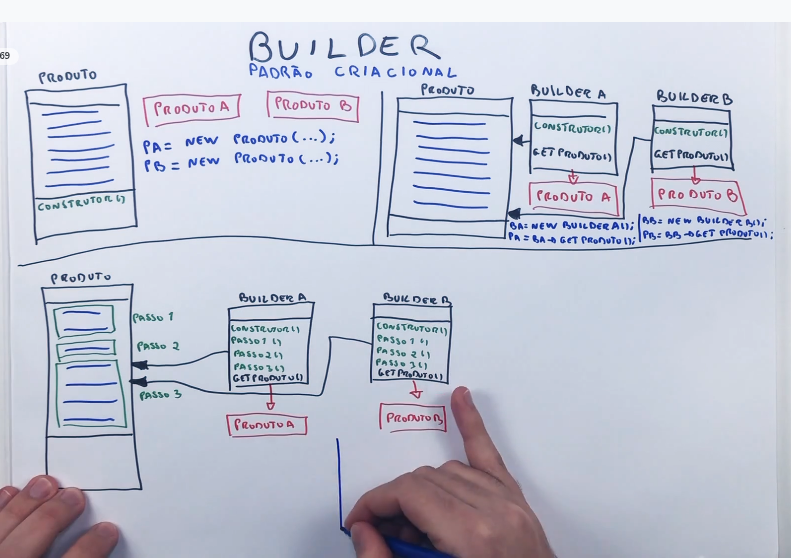 69
BUILDER
PADRÃO CRIACIONAL
PRODUTO
CONSTRUTOR()
PRODUTO A
PRODUTO B
PA = NEW PRODUTO (...);
PB = NEW PRODUTO (...);
PRODUTO
BUILDER A
CONSTRUTOR()
GETPRODUTO()
PRODUTO A
BA = NEW BUILDERA();
PA = BA→GETPRODUTO();
BUILDER B
CONSTRUTOR()
GETPRODUTO()
PRODUTO B
BB = NEW BUILDERB();
PB = BB→GET PRODUTO();
PRODUTO
PASSO 1
PASSO 2
PASSO 3
BUILDER A
CONSTRUTOR()
PASSO 1 ()
PASSO 2 ()
PASSO 3 ()
GETPRODUTO()
PRODUTO A
BUILDER B
CONSTRUTOR()
PASSO 1 ()
PASSO 2 ()
PASSO 3 ()
GETPRODUTO()
PRODUTO B